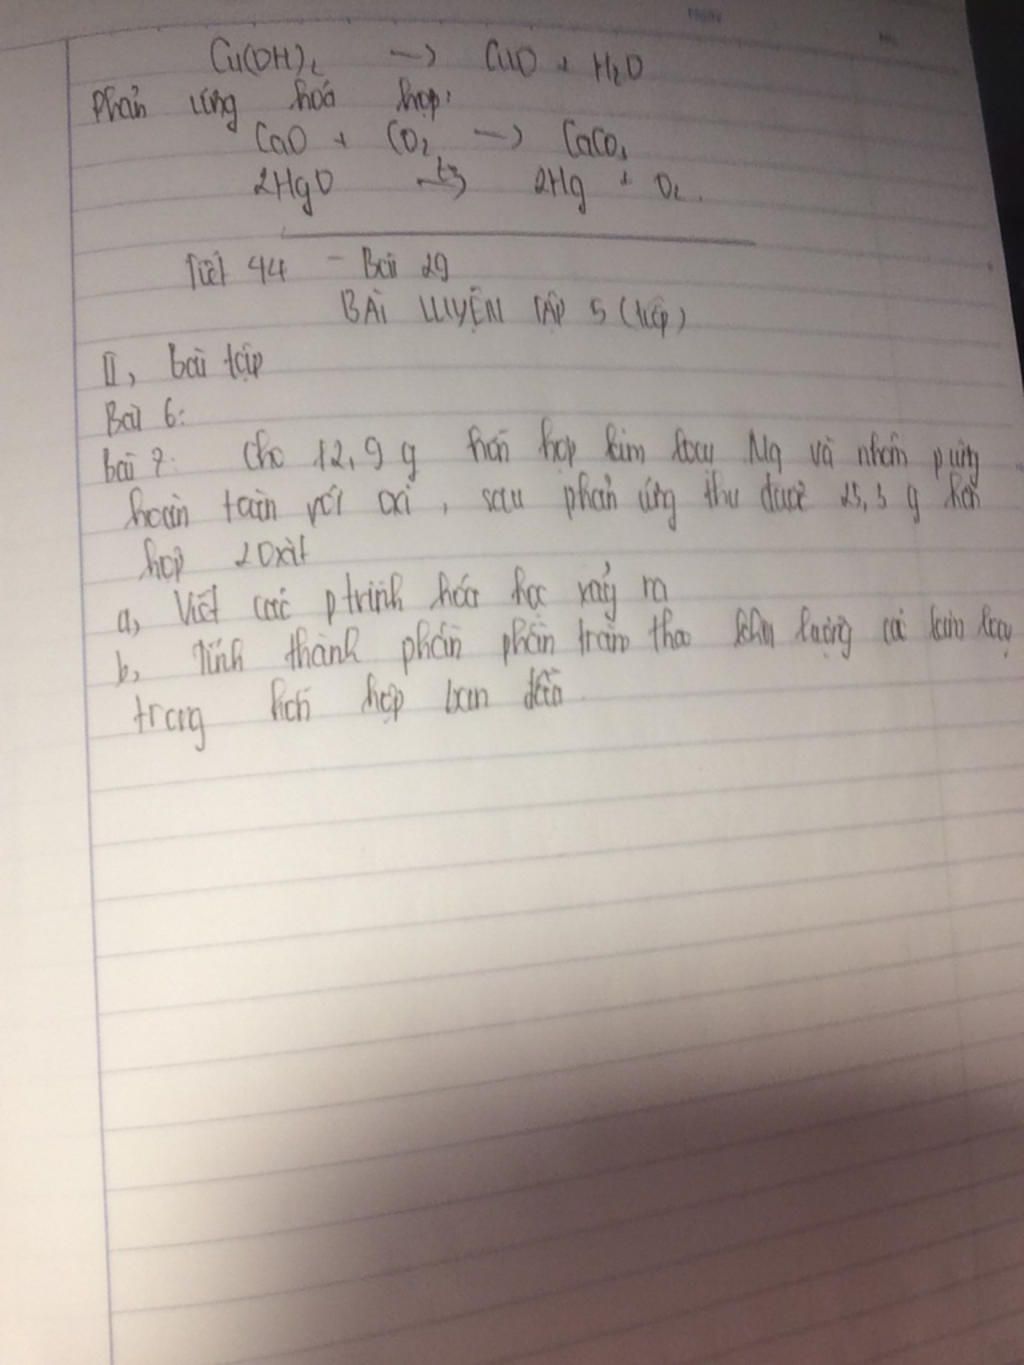 Cu(OH)₂ → CuO + H₂O
Phản ứng hoá hợp:
CaO + CO₂ → CaCO₃
2HgO → 2Hg + O₂.
Tiết 44 - Bài 29
BÀI LUYỆN TẬP 5 (tiếp)
II, bài tập
Bài 6:
bài 7: Cho 12,9 g hỗn hợp kim loại Mg và nhôm pứng
hoàn toàn với oxi, sau phản ứng thu được g hỗn
hợp 2 oxit
a, Viết các ptrình hóa học xảy ra
b, Tính thành phần phần trăm theo khối lượng các kim loại
trong hỗn hợp ban đầu.